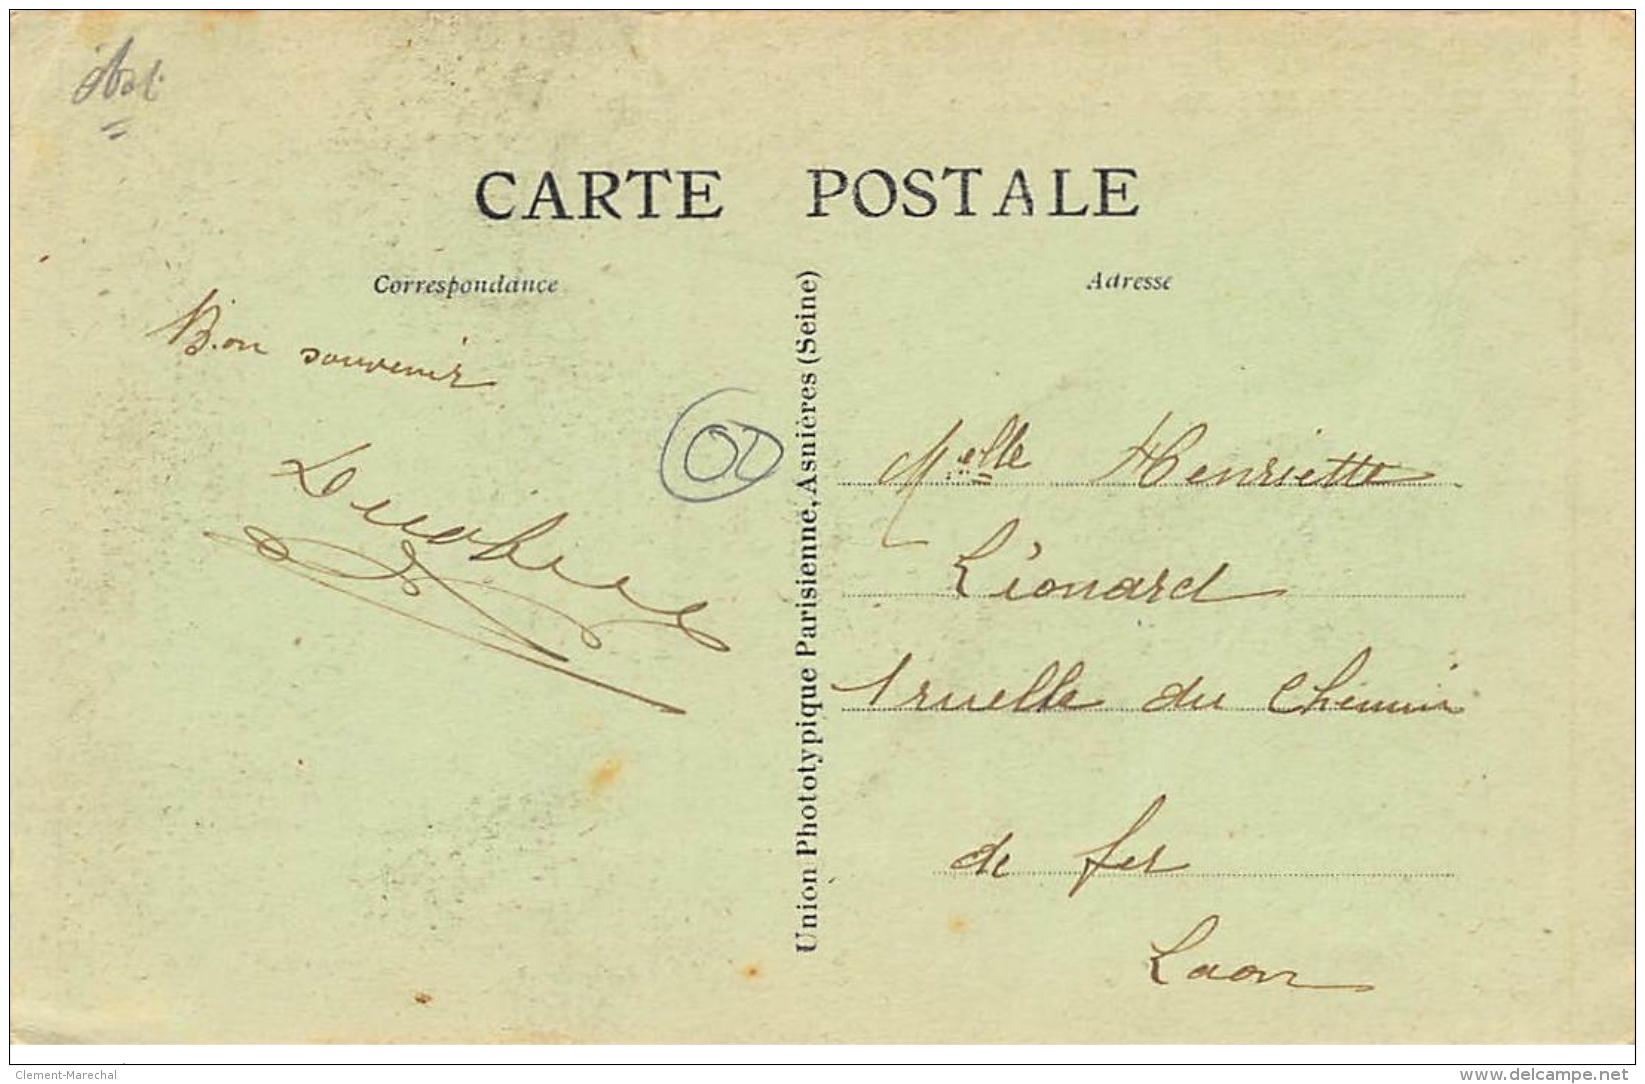 CARTE POSTALE
Correspondance
Adresse
Bon souvenir
OD
Union Phototypique Parisienne, Asnières (Seine)
Melle Henriette
Léonard
1 ruelle du Chemin
de fer
Laon
Clement-Marechal
www.delcampe.net